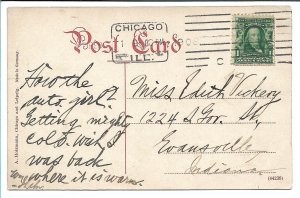 CHICAGO
ILL.
Post Card
How the
auto, girl?
Getting might
cold. wish I
was back
where it is warm.
Miss Edith Vickery
1224 Gov. St,
Evansville
Indiana
A. Holzmann, Chicago and Leipzig. Made in Germany